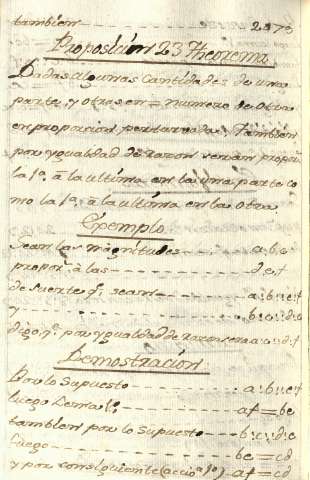 tambien 2373
Proposicion 23 Theorema
Dadas algunas Cantidades de una
parte, y otras en = numero de otra
en proporcion perturvada: Tambien
por ygualdad de razon seran propor.
la 1ª a la ultima en la una parte co
mo la 1ª a la ultima en la otra
Exemplo
sean las magnitudes a.b.c
propor. a las d.e.f
de suerte q. sean a:b::e:f
y b:c::d:e
digo, q. por ygualdad de razon sera a:c::d:f
Demostracion
Por lo Supuesto a:b::e:f
luego af = be
tambien por lo Supuesto b:c::d:e
luego be = cd
y por consiguiente (accio 1º) af = cd